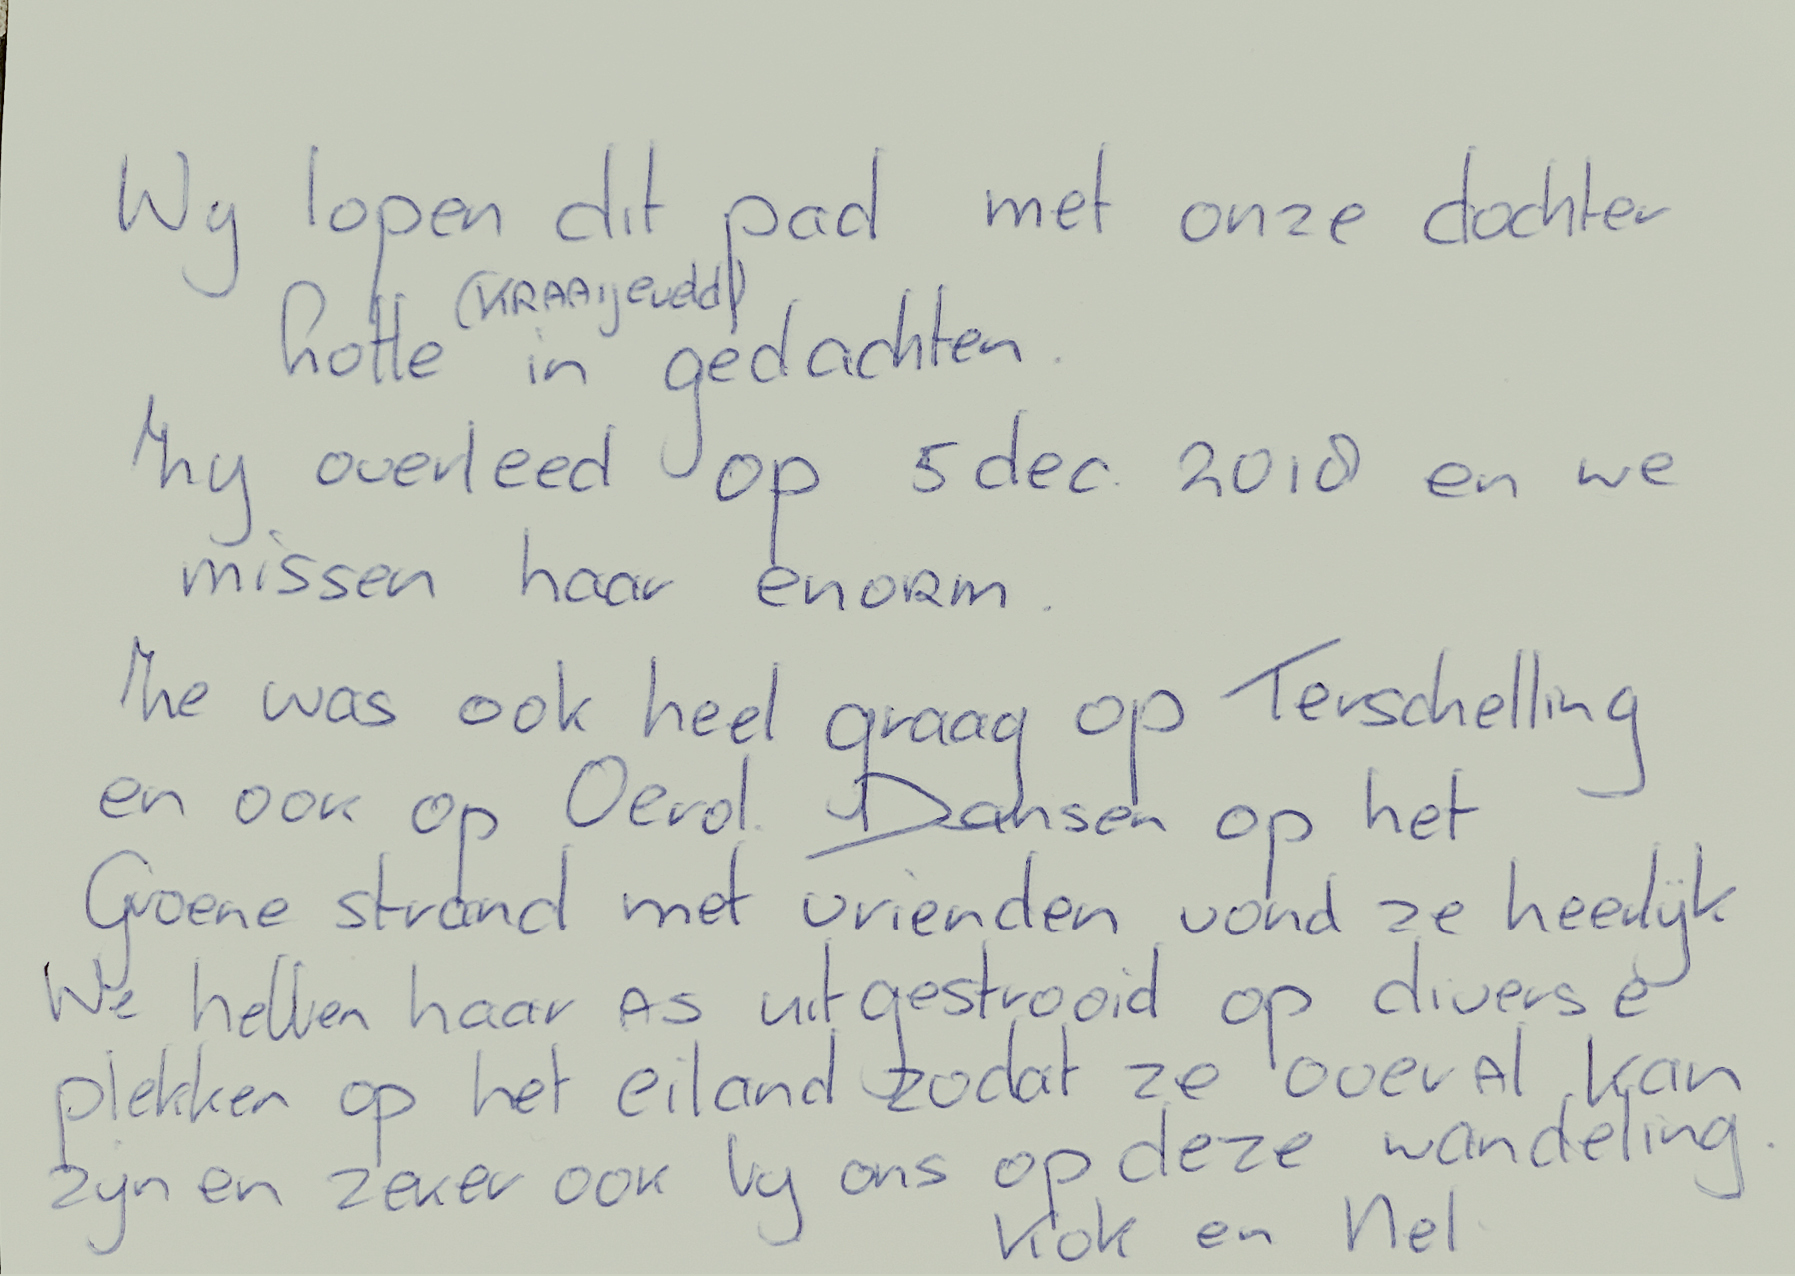 Wij lopen dit pad met onze dochter
Lotte (KRAAijeveld) in gedachten.
Zij overleed op 5 dec. 2018 en we
missen haar enorm.
Ze was ook heel graag op Terschelling
en ook op Oerol. Dansen op het
Groene strand met vrienden vond ze heerlijk
We hebben haar As uitgestrooid op diverse
plekken op het eiland zodat ze overAl kan
zijn en zeker ook bij ons op deze wandeling.
Kok en Nel